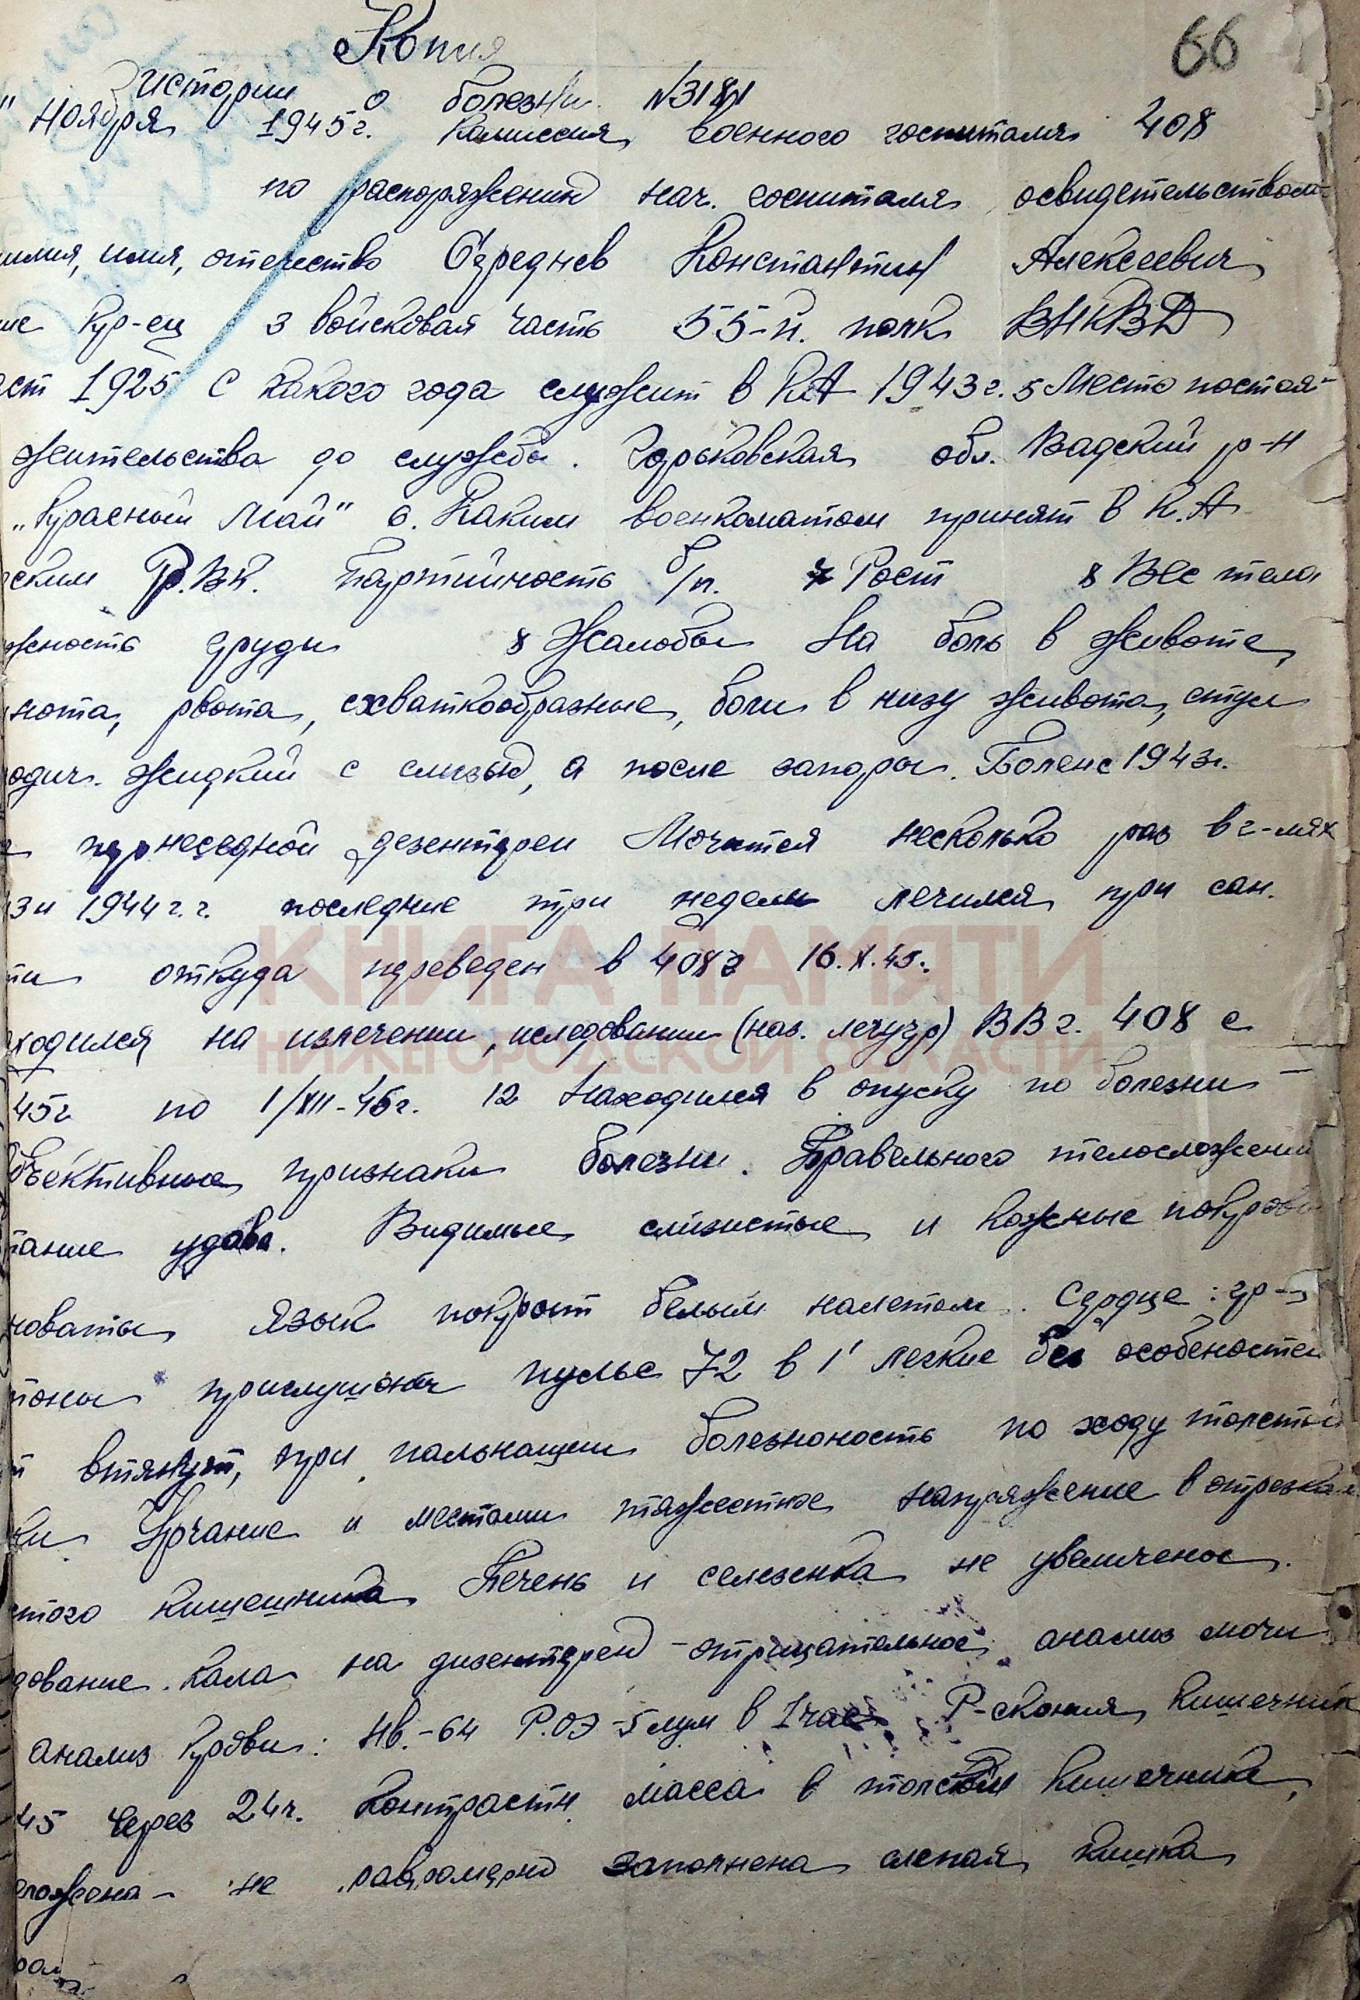 Копия
66
истории о болезни №3181
" Ноября 1945г. Камиссия военного госпиталя 408
по распоряжению нач. госпиталя освидетельствован
милия, имя, отчество Середнев Константин Алексеевич
ие кр-ец 3 войсковая часть 55-й. полк ВНКВД
аст 1925 С какого года служит в КА 1943г. 5 Место постоя-
жительства до службы. Горьковская обл. Вадский р-н
„Красный Май" 6. Каким военкоматом принят в К.А
ским Р.ВК. Партийность б/п. 7 Рост 8 Вес тела
жность груди 8 Жалобы На боль в животе,
нота, рвота, схваткообразные, боли в низу живота, стул
одич. жидкий с слизью, а после запоры. Болен с 1943г.
перенесенной дезентреи несколько раз в г-лях
43 и 1944 г.г. последние три недели лечился при сан.
ти откуда переведен в 408г 16.X.45.
КНИГА ПАМЯТИ
НИЖЕГОРОДСКОЙ ОБЛАСТИ
ходился на излечении, иследовании (наз. лечучр) ВВг. 408 с
45г по 1/XII-45г. 12 Находился в опуску по болезни –
бъективные признаки болезни. Правельного телосложения
тание удовл. Видимые слизистые и кожные покровы
новаты Язык покрыт белым налетом. Сердце: гр-
тоны пульс 72 в 1' легкие без особеностей
т втянут, при пальпации болезноность по ходу толстой
ки. Урчание и местами напряжение в отрезках
стого кишешника Печень и селезенка не увеличены.
дование кала на дизентерею – отрицательное, анализ мочи
анализ крови: Нв.-64 Р.ОЭ-5 мум в 1 час Р-скопия, кишечник
45 через 24ч. контрастн. масса в толстом кишечнике,
оложена – не равромерно заполнена слепая кишка